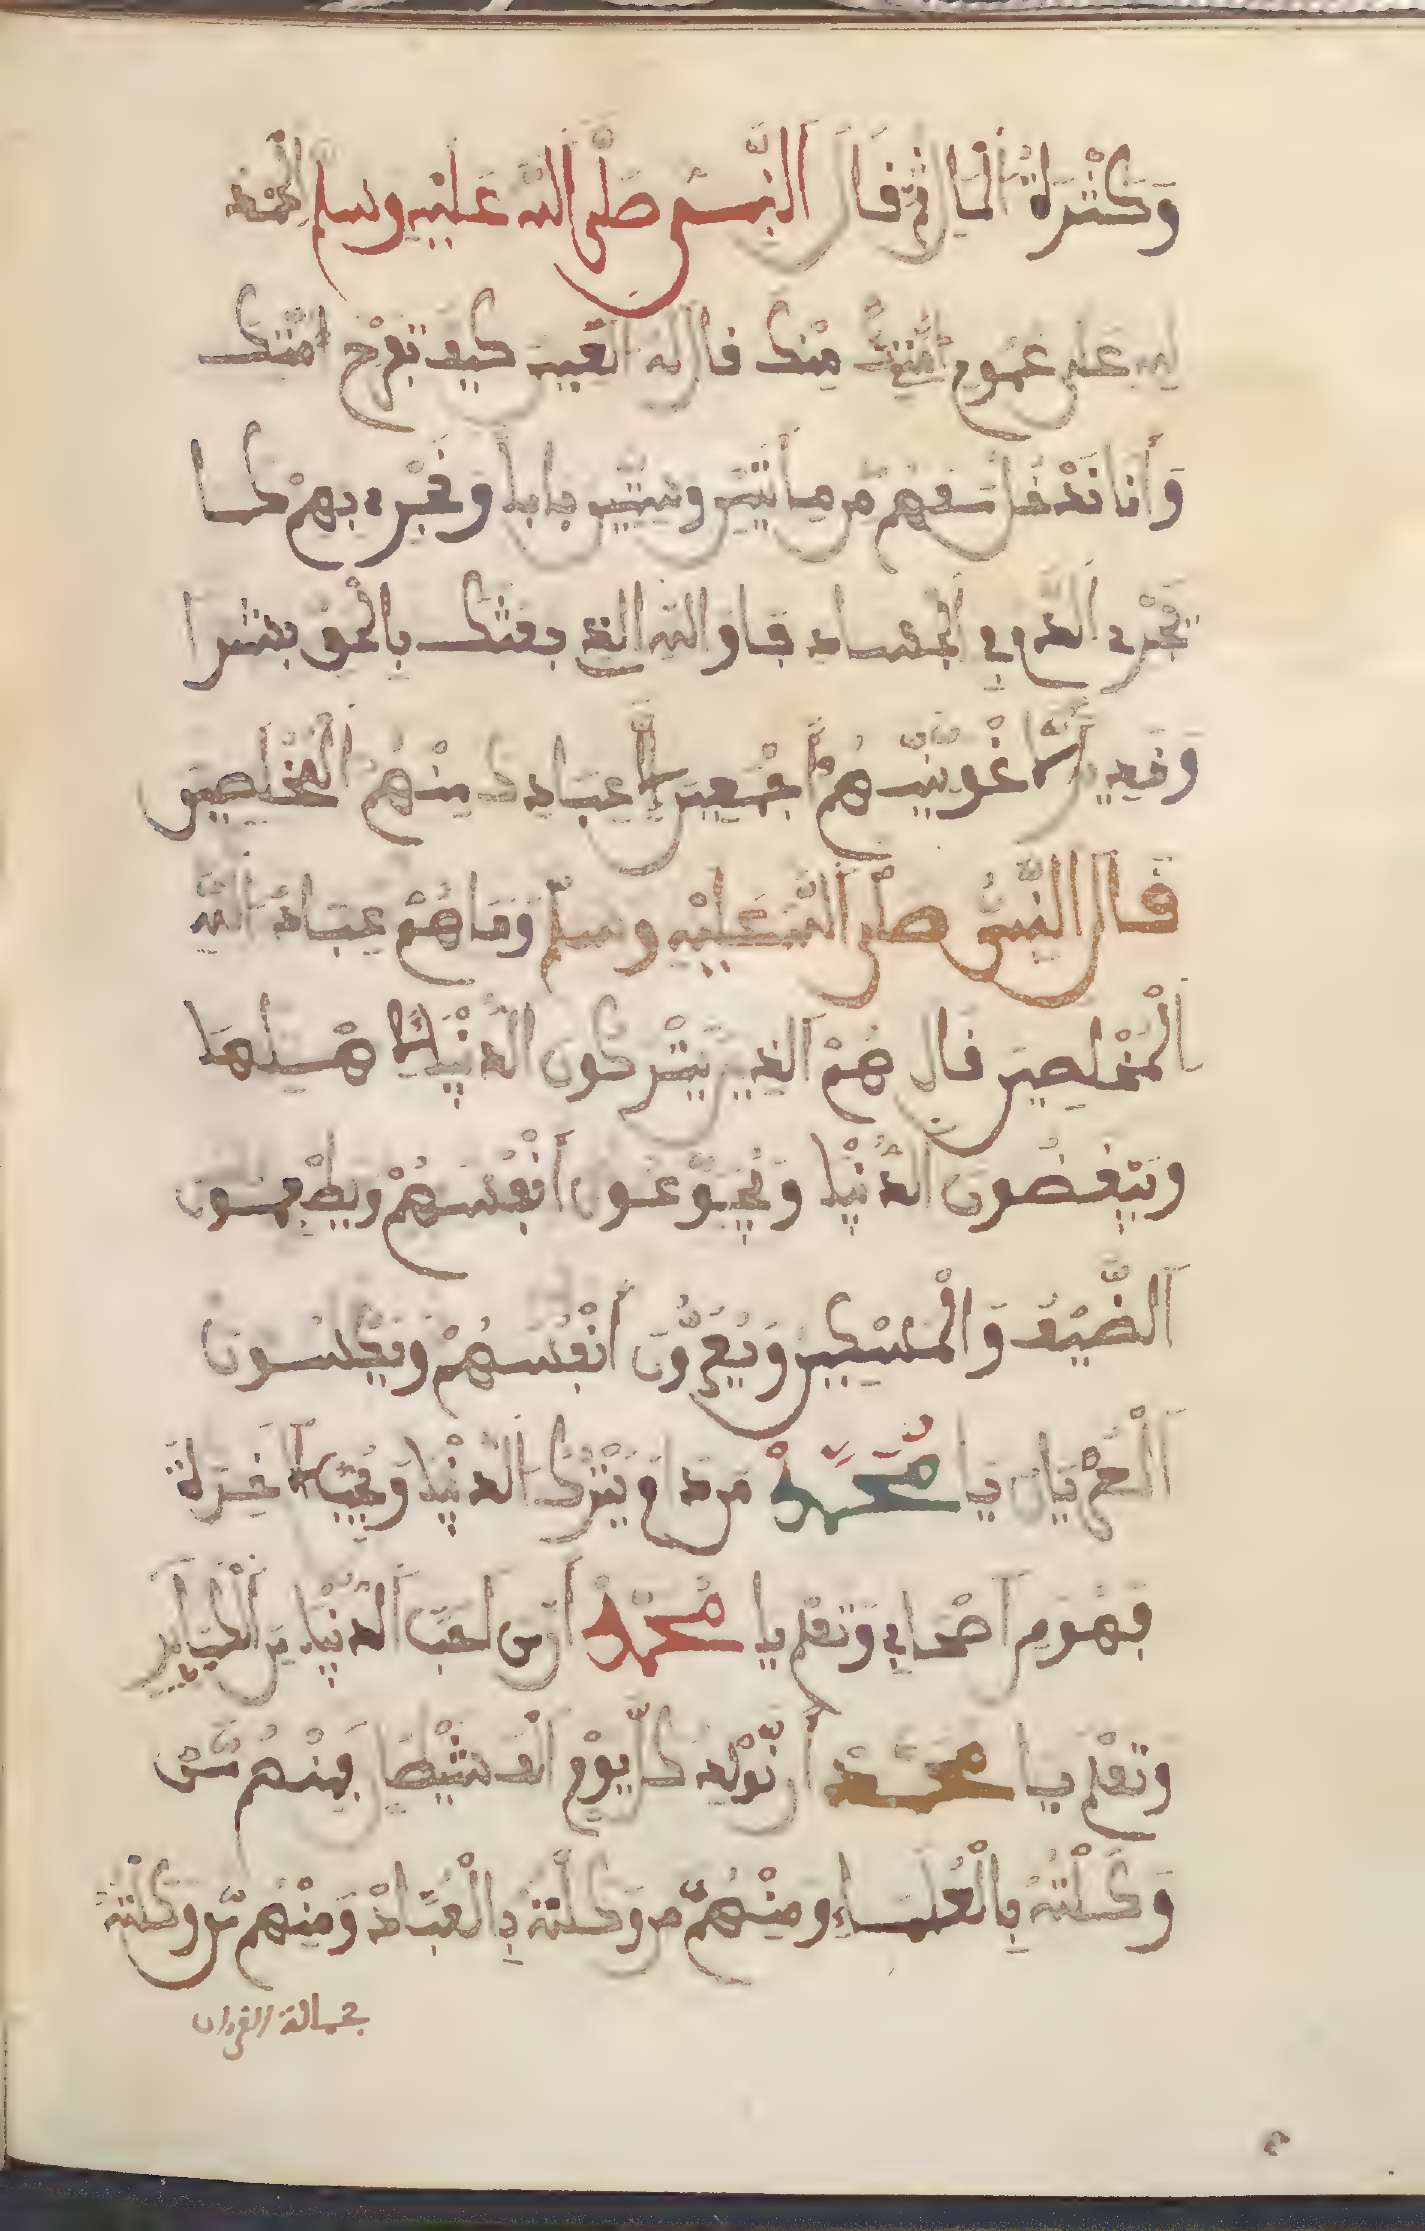 وَكَثْرَةُ الْمَالِ ثُمَّ قَالَ النَّبِيُّ صَلَّى اللهُ عَلَيْهِ وَسَلَّمَ الْحَمْدُ
لله على غموم أمتي منك قال له اللعين كيف تفرح امتك
وَأَنَا نَدْخُل مِن مِائَتَيْنِ وستين بابا وَنَجْرِي بِهِمْ كما
يَجْرِي الدَّم فِي الْجَسَادِ فَوَ اللهِ الذي بعثك بِالْحَقِّ بَشِيرا
وَنَذِير لأُغْوِيَنَّهُمْ أَجْمَعِينَ إِلَّا عِبَادك مِنْهُمُ الْمُخْلَصِينَ
قَالَ النَّبِيُّ صَلَّى اللهُ عَلَيْهِ وَسَلَّمَ وَمَا هُمْ عِبَادُ اللهِ
الْمُخْلِصِينَ قَالَ هُمْ الَّذِينَ يَتْرُكُونَ الدُّنْيَا لِأَهْلِهَا
وَيَبْغَضُونَ الدُّنْيَا وَيُجَوِّعُونَ أَنْفُسَهُمْ وَيُطْعِمُونَ
الضَّيْفَ وَالْمِسْكِين وَيُعَرُّونَ أَنْفُسَهُمْ وَيَكْسُونَ
الْعُرْيَان يَا مُحَمَّدُ مَن يَتْرُك الدُّنْيَا وَيُحِبُّ الْآخِرَةَ
فَهُوَ مِن أَصْحَابِي وَتعْلم يا مُحَمَّدُ أَن مَن أحَبَّ الدُّنْيَا مِنَ الْخَبَايِر
وَتَعْلم يا مُحَمَّد أن نُولد كلّ يَوْم ألف شيطان فَمِنْهُم مَّن
وَكَّلْتُهُ بِالْعُلَمَاءِ وَمِنْهُم مَّن وَكَّلْتُهُ بِالْعُبَّادِ وَمِنْهُم مَّن وَكَّلْتُهُ
بحمالة القرءان